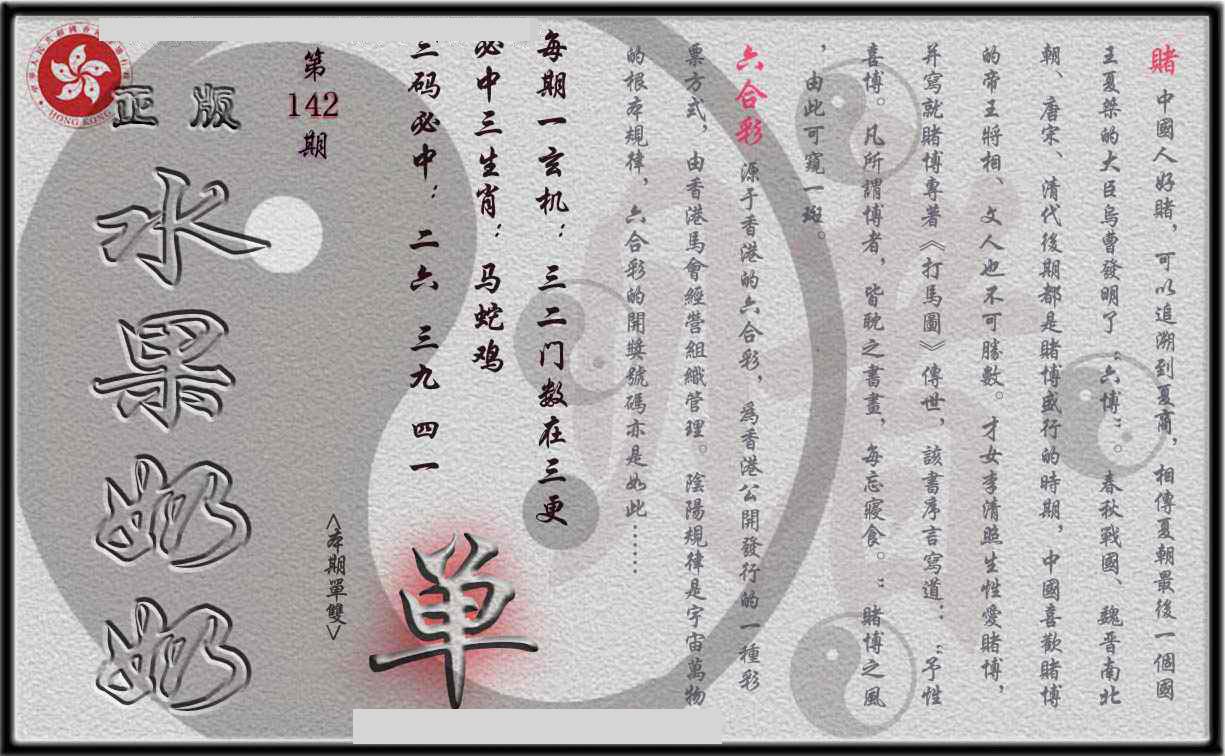 賭 中國人好賭，可以追溯到夏商，相傳夏朝最後一個國
王夏桀的大臣烏曹發明了“六博”。春秋戰國、魏晋南北
朝、唐宋、清代後期都是賭博盛行的時期，中國喜歡賭博
的帝王將相、文人也不可勝數。才女李清照生性愛賭博，
并寫就賭博專著《打馬圖》傳世，該書序言寫道：“予性
喜博。凡所謂博者，皆耽之書畫，每忘寢食。”賭博之風
，由此可窺一斑。
六合彩 源于香港的六合彩，爲香港公開發行的一種彩
票方式，由香港馬會經營組織管理。陰陽規律是宇宙萬物
的根本規律，六合彩的開獎號碼亦是如此……
每期一玄机：三二门数在三更
必中三生肖：马蛇鸡
三码必中：二六 三九 四一
第
142
期
<本期單雙>
单
正版
水果奶奶
HONG KONG